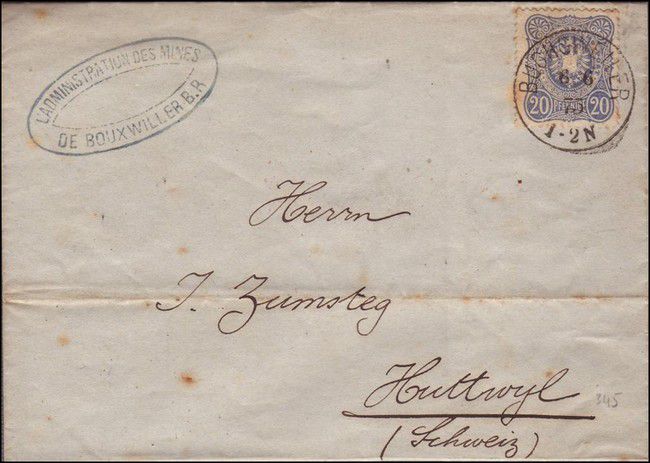 L'ADMINISTRATION DES MINES
DE BOUXWILLER B.R
BUCHSWEILER
6 6
1-2N
20 PFENNIG 20
Herrn
J. Zumsteg
Huttwyl
(Schweiz)
345